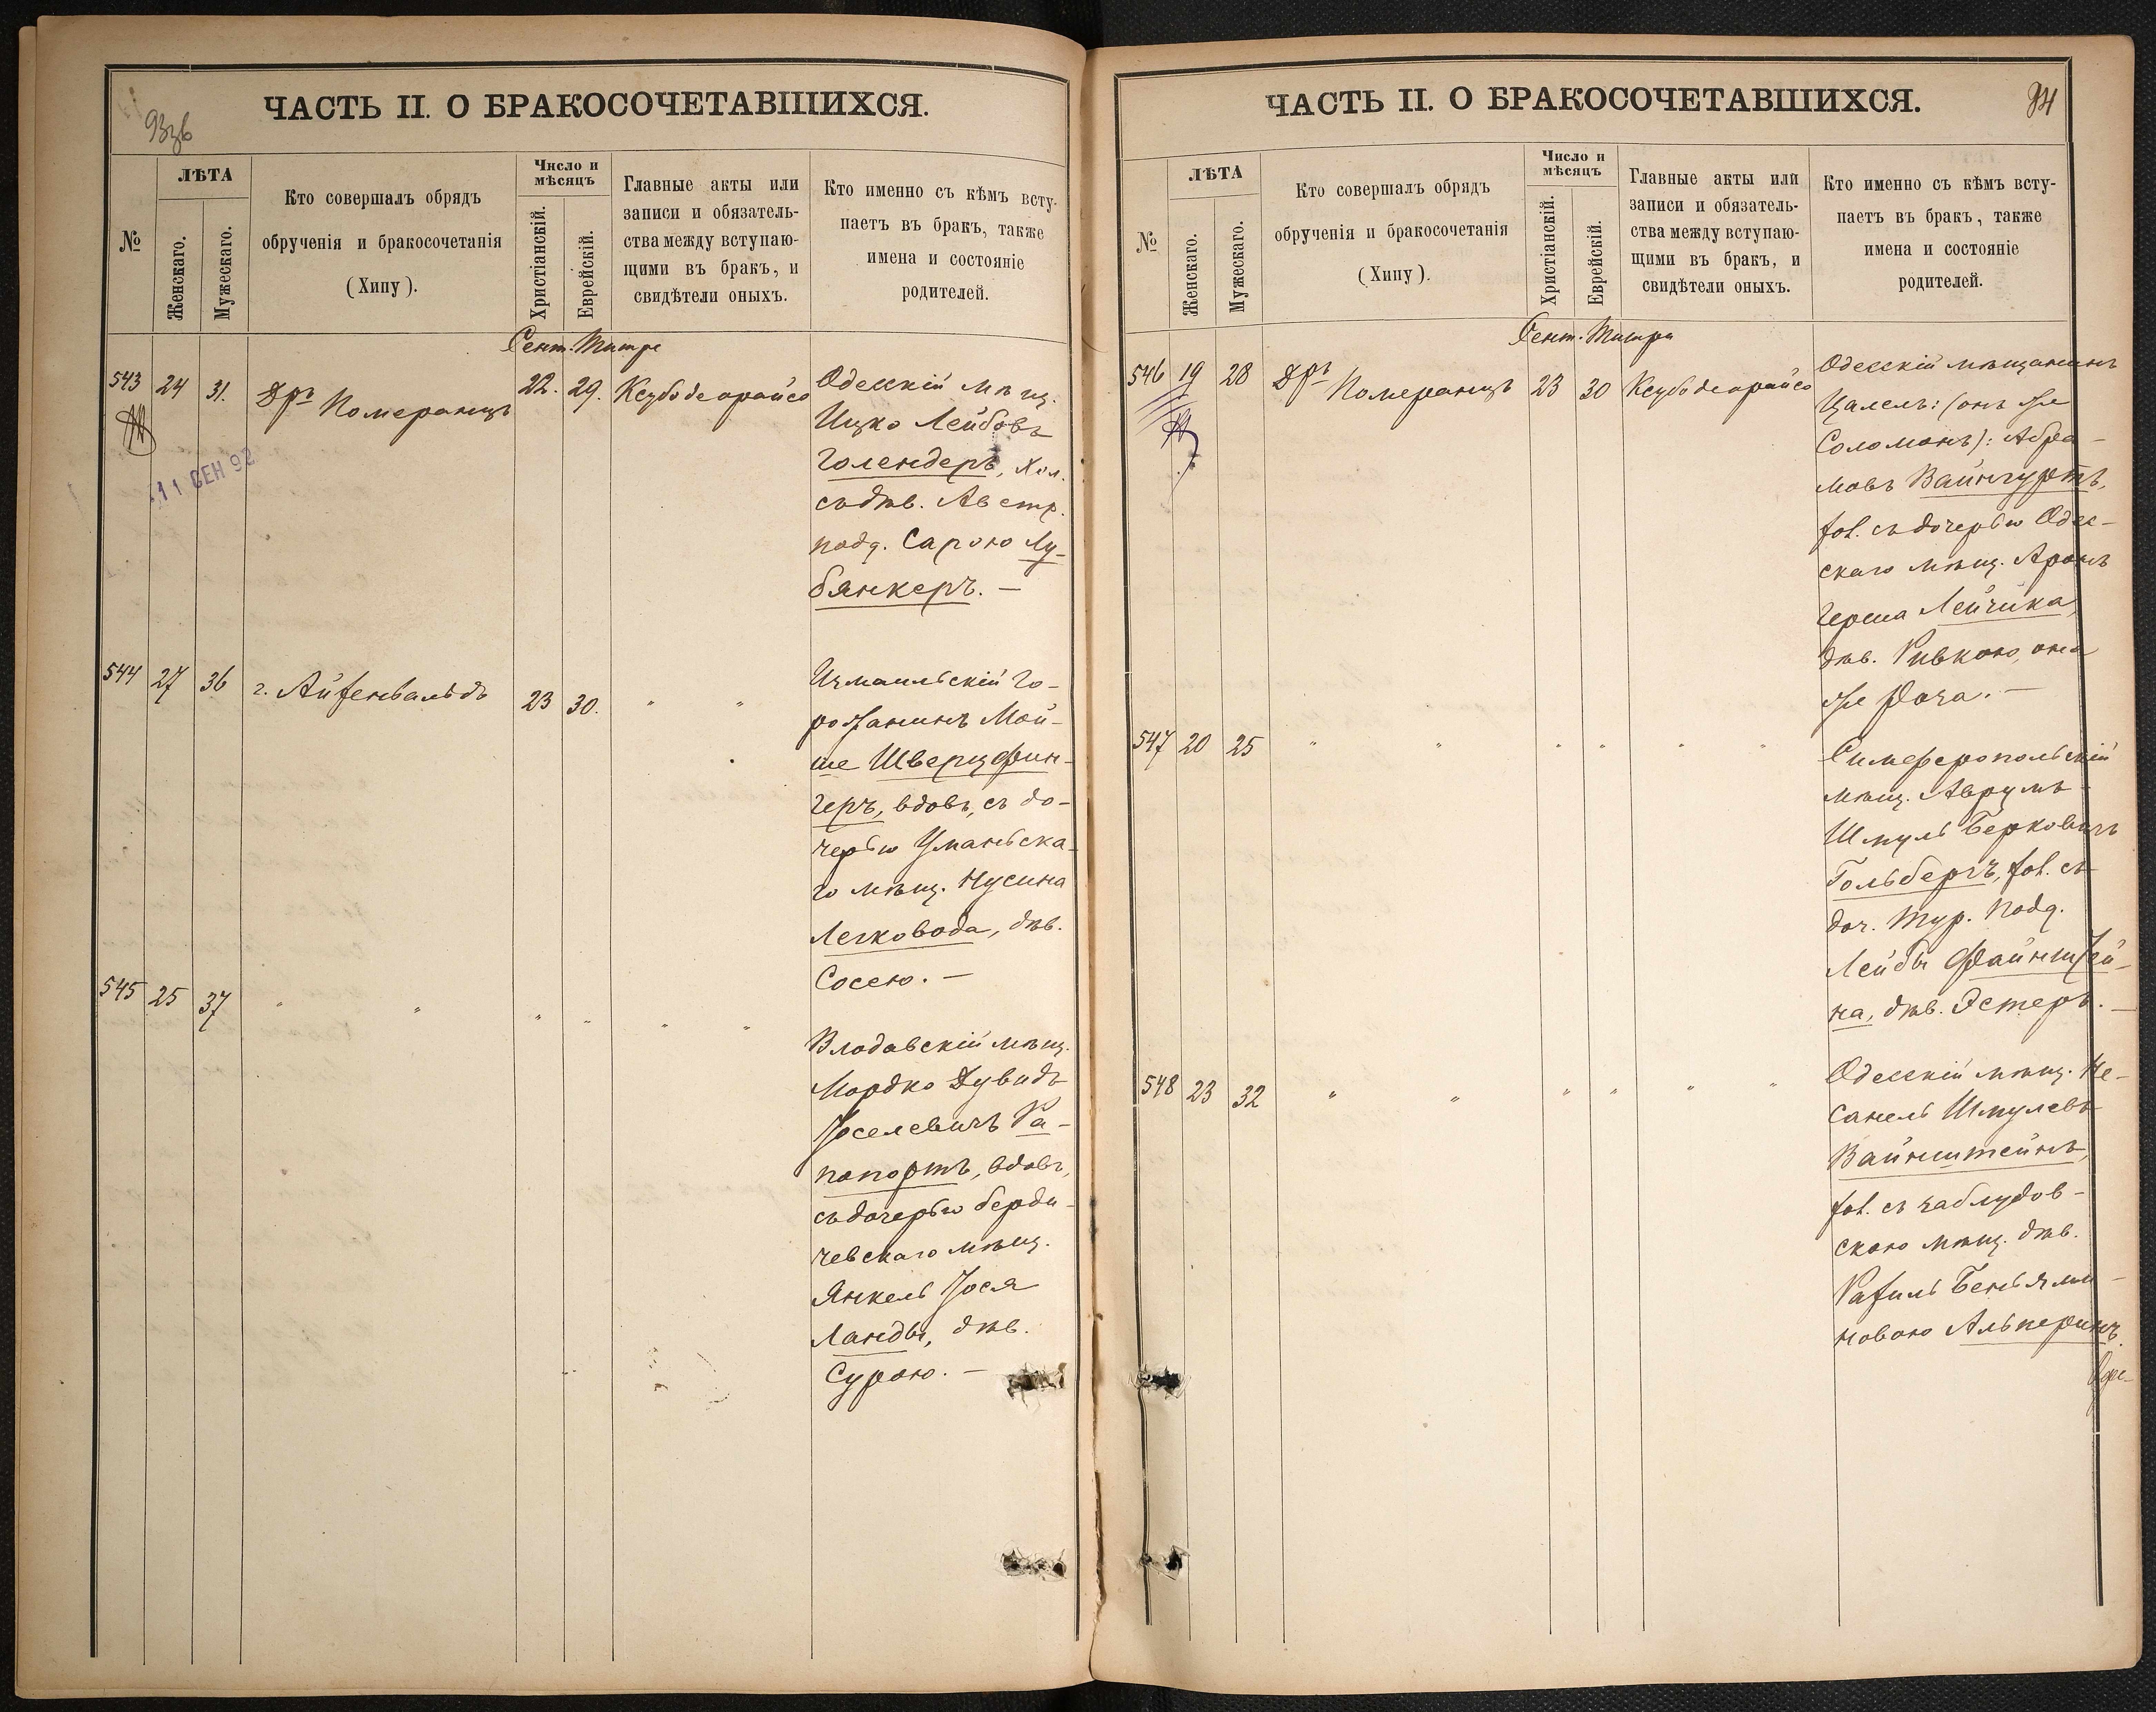 93об
ЧАСТЬ II. О БРАКОСОЧЕТАВШИХСЯ.
№
ЛѢТА
Женскаго.
Мужескаго.
Кто совершалъ обрядъ
обрученія и бракосочетанія
(Хипу).
Число и
мѣсяцъ
Христіанскій.
Еврейскій.
Главные акты или
записи и обязатель-
ства между вступаю-
щими въ бракъ, и
свидѣтели оныхъ.
Кто именно съ кѣмъ всту-
паетъ въ бракъ, также
имена и состояніе
родителей.
Сент. Тишре
543 24 31. Дръ Померанцъ 22. 29. Ксубо деорайсо
11 СЕН 92
Одесскій мѣщ.
Ицко Лейбовъ
Голендеръ, хол.
съ дѣв. Австр.
подд. Сарою Лу-
бянкеръ. —
544 27 36 г. Айзенвальдъ 23 30. " "
Измаильскій го-
рожанинъ Мой-
ше Шверцфин-
геръ, вдовъ, съ до-
черью Уманьска-
го мѣщ. Нусина
Легковода, дѣв.
Сосею. —
545 25 37 " " " " " "
Влодавскій мѣщ.
Мордко Дувидъ
Іоселевичъ Ра-
попортъ, вдовъ,
съ дочерью берди-
чевскаго мѣщ.
Янкель Іося
Ланды, дѣв.
Сурою. —
94
ЧАСТЬ II. О БРАКОСОЧЕТАВШИХСЯ.
№
ЛѢТА
Женскаго.
Мужескаго.
Кто совершалъ обрядъ
обрученія и бракосочетанія
(Хипу).
Число и
мѣсяцъ
Христіанскій.
Еврейскій.
Главные акты или
записи и обязатель-
ства между вступаю-
щими въ бракъ, и
свидѣтели оныхъ.
Кто именно съ кѣмъ всту-
паетъ въ бракъ, также
имена и состояніе
родителей.
Сент. Тишри
546 19 28 Дръ Померанцъ 23 30 Ксубо деорайсо
Одесскій мѣщанинъ
Цалель: (онъ же
Соломонъ): Абра-
мовъ Вайнгуртъ,
хол. съ дочерью Одес-
скаго мѣщ. Аронъ
Герша Лейчика,
дѣв. Ривкою, она
же Роза. —
547 20 25 " " " " " "
Симферопольскій
мѣщ. Аврумъ
Шмуль Берковичъ
Гольбергъ, хол. съ
доч. Тур. подд.
Лейбы Файншей-
на, дѣв. Эстеръ. —
548 23 32 " " " " " "
Одесскій мѣщ. Не-
санель Шмулевъ
Вайнштейнъ,
хол. съ заблудов-
скою мѣщ. дѣв.
Рахиль Беньями-
новою Альперинъ.